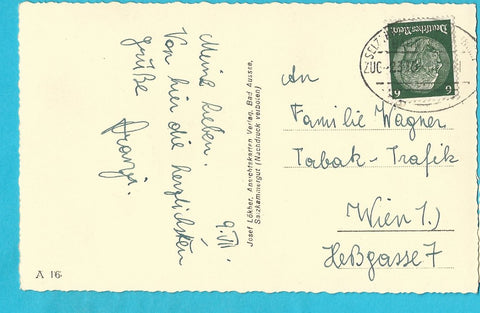 9. VII.
Meine lieben.
Von hier die herzlichsten
grüße
Franzi.
Josef Lökher, Ansichtskarten Verlag, Bad Aussee,
Salzkammergut (Nachdruck verboten)
A 16
Deutsches Reich
6 6
ZUG
An
Familie Wagner
Tabak - Trafik
Wien 1.)
Heßgasse 7